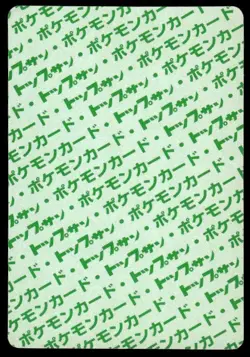 ポケモンカード
トップサン・ポケモンカード
カード・トップサン・ポケモン
ポケモンカード・トップサン
トップサン・ポケモンカード・
カード・トップサン・ポケモン
ポケモンカード・トップサン
トップサン・ポケモンカード
カード・トップサン・ポケモン
ポケモンカード・トップサン
トップサン・ポケモンカード
カード・トップサン・ポケモン
ポケモンカード・トップサン
トップサン・ポケモンカード
ポケモンカード